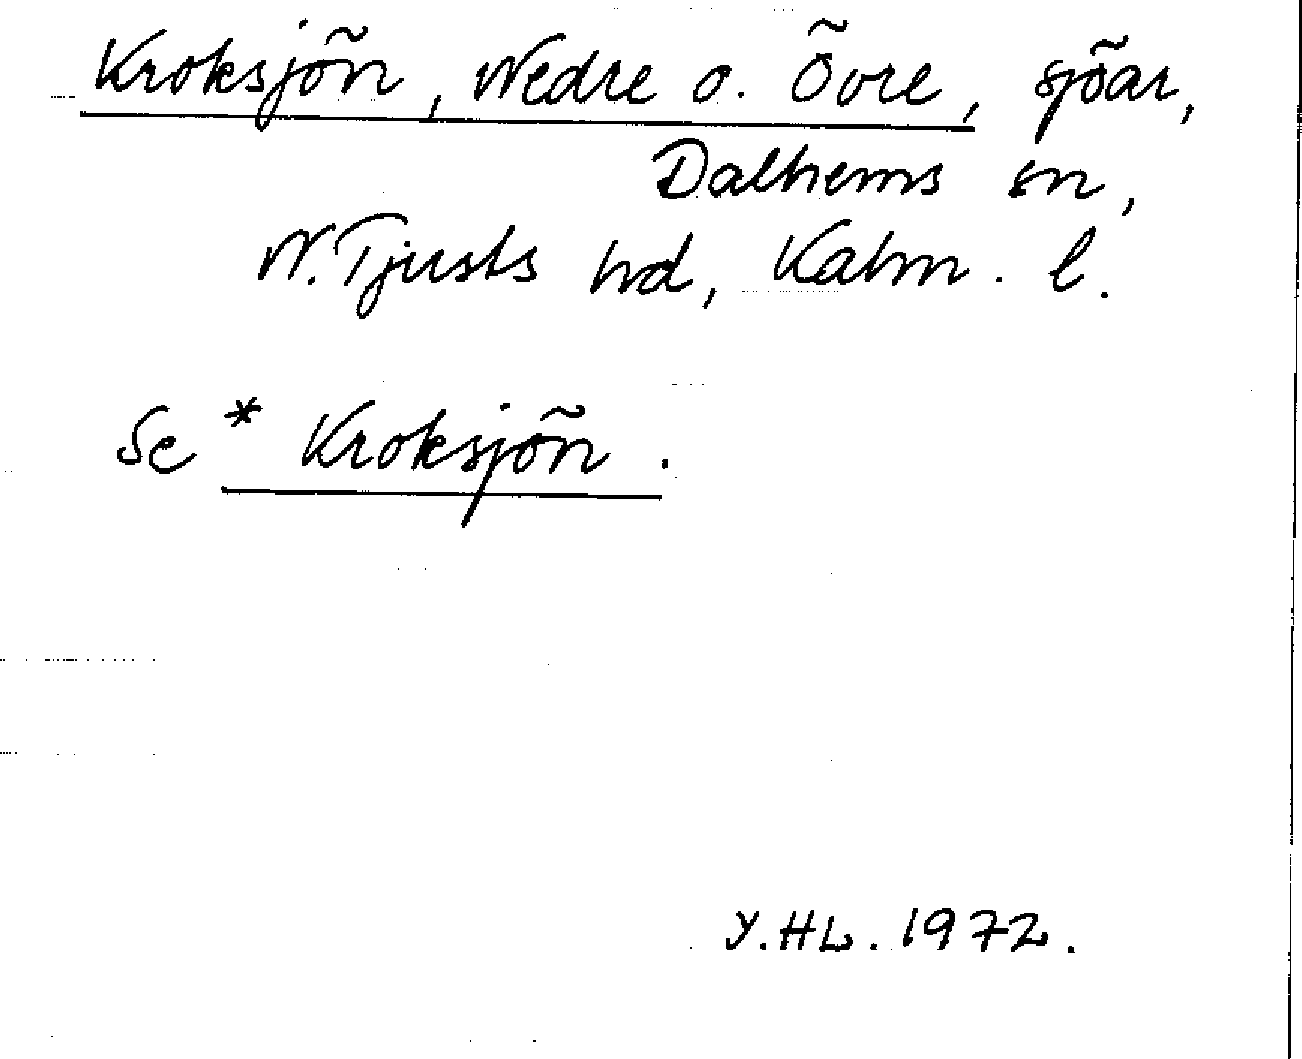 Kroksjön, Nedre o. Övre, sjöar,
Dalhems sn,
N. Tjusts hd, Kalm. l.
Se * Kroksjön.
Y.HL. 1972.